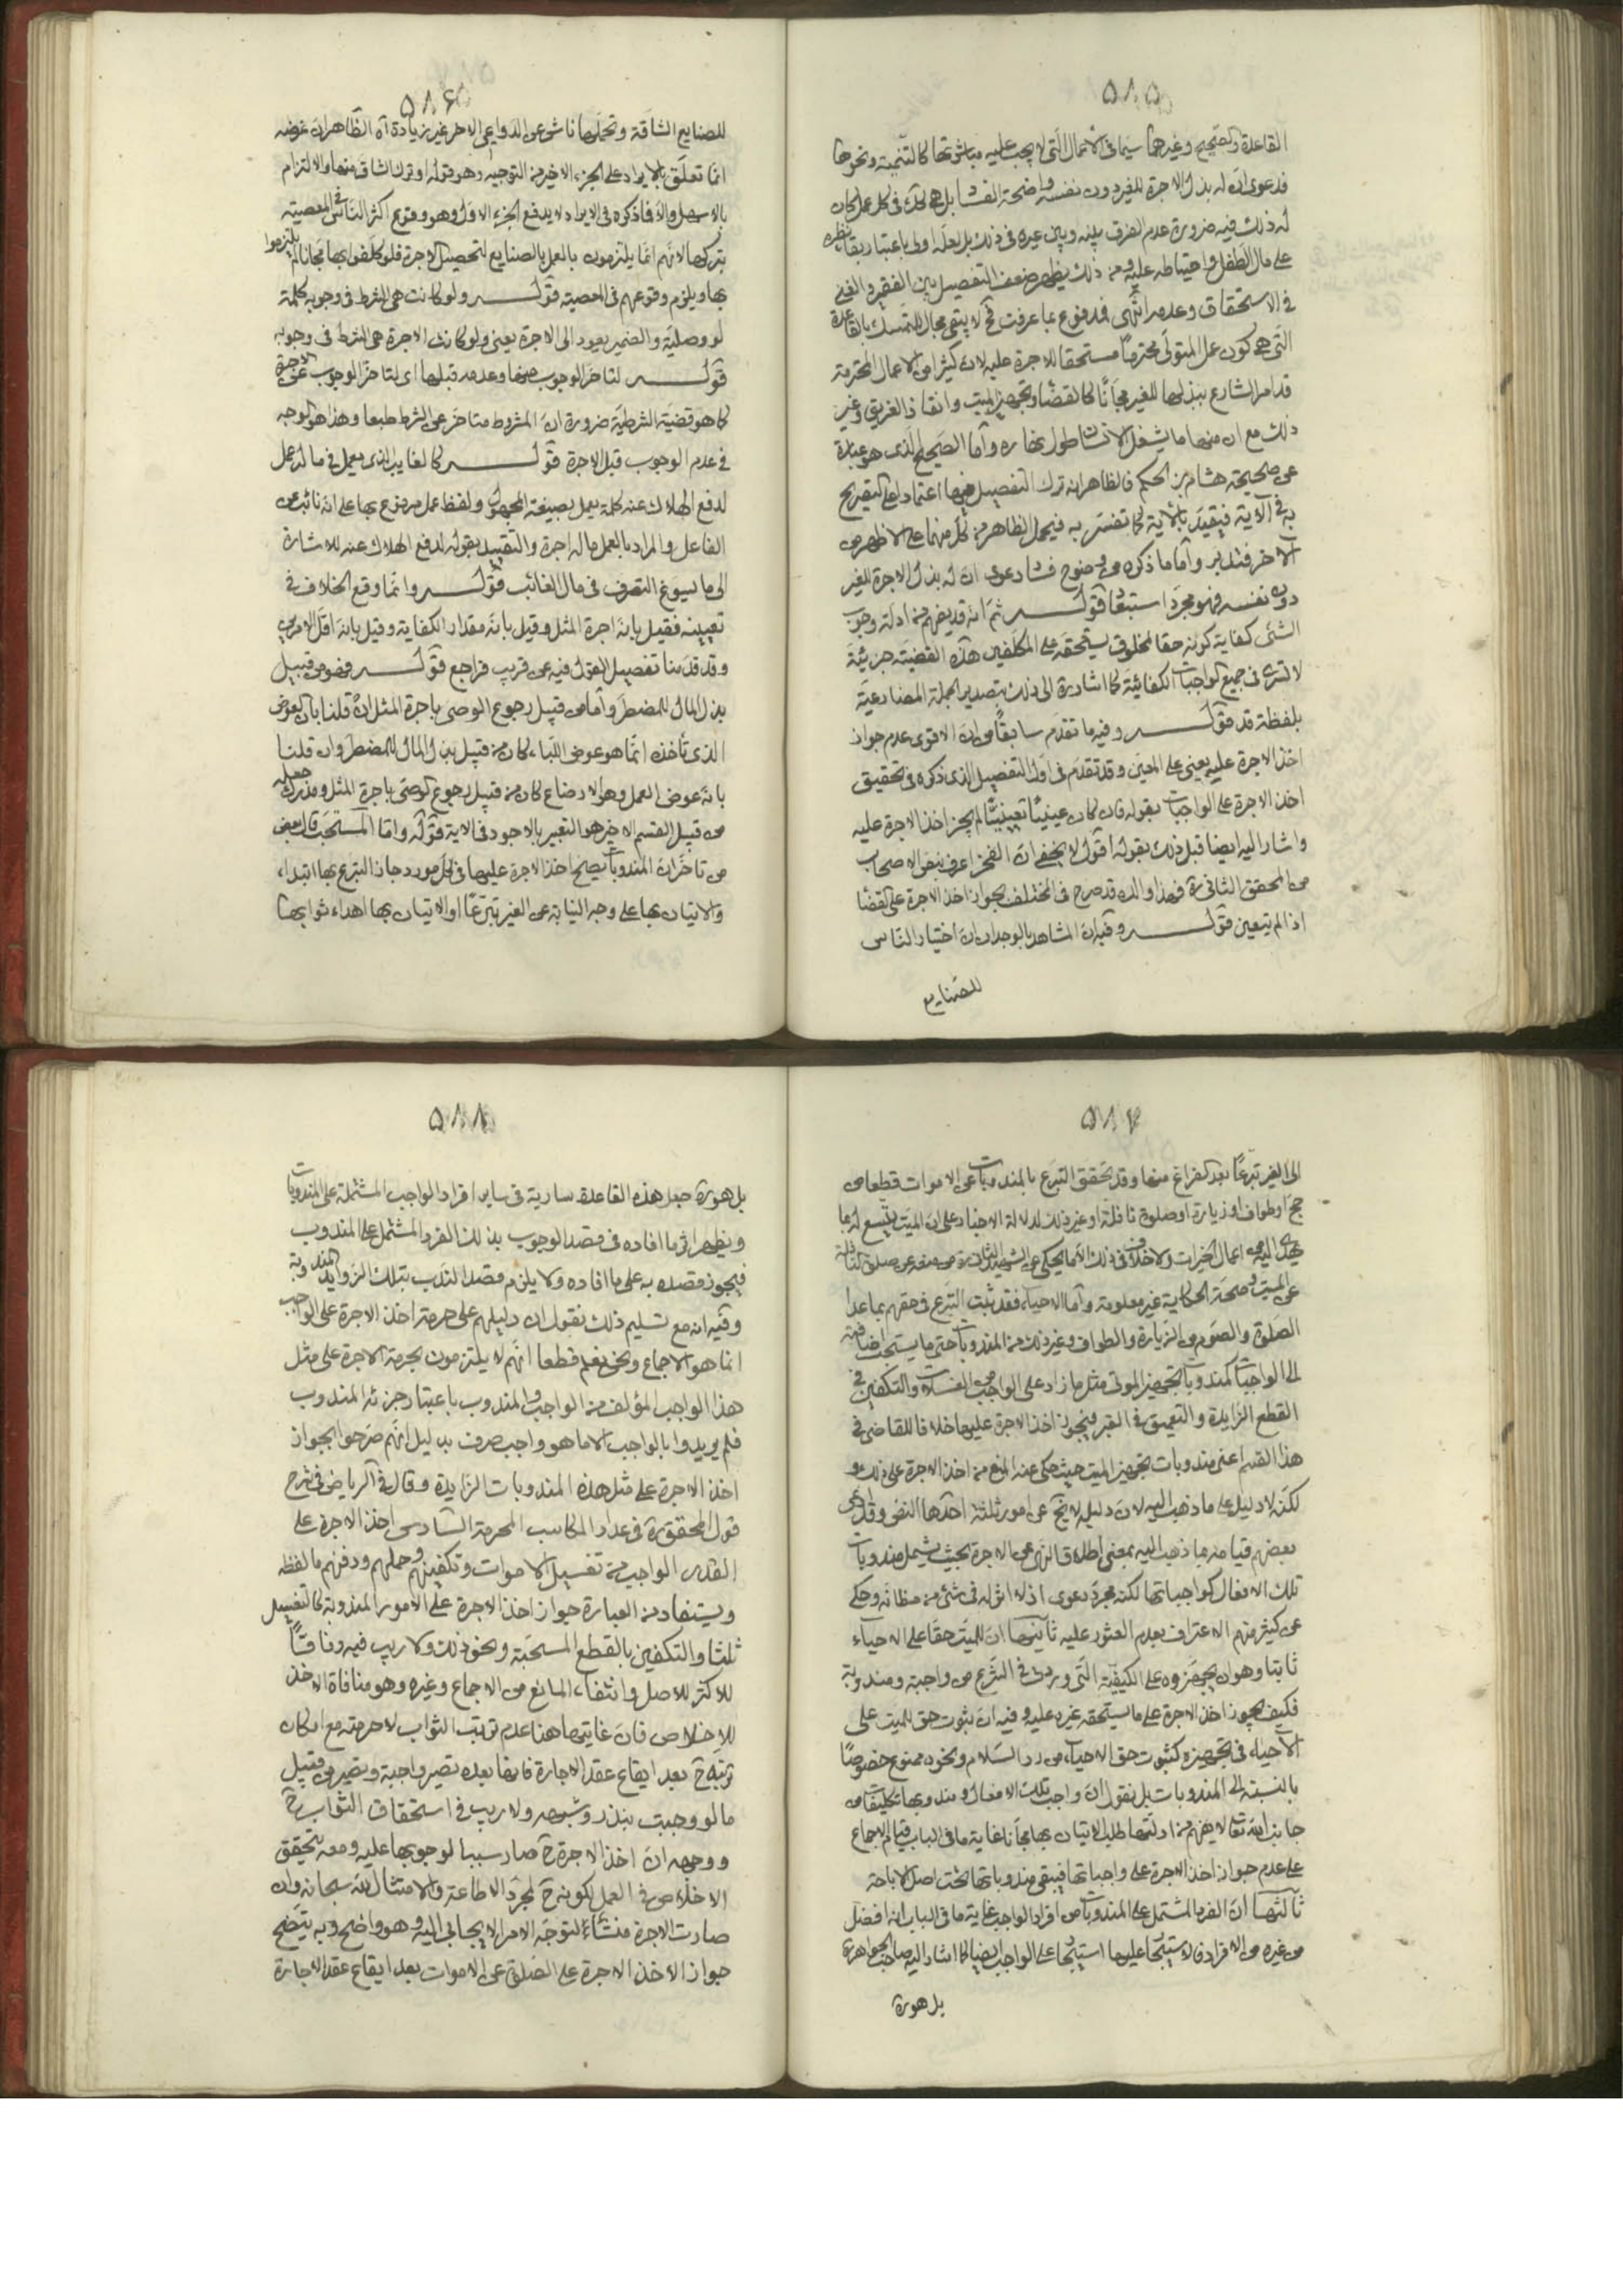 ۵۸۵
القاعدة والصحيح وغيرهما سيما فى الاعمال التى لا يجب عليه مباشرتها كالتنمية ونحوها
فدعوى ان له بذل الاجرة للغير دون نفسه واضحة الفساد بل هى كك فى كل عمل كان
له ذلك فيه ضرورة عدم الفرق بينه وبين غيره فى ذلك بل لعله اولى باعتبار بقاء نظره
على مال الطفل واحتياطه عليه ومن ذلك يظهر ضعف التفصيل بين الفقير والغنى
فى الاستحقاق وعدمه انتهى فمدفوع بما عرفت فح لا يبقى مجال للتمسك بالقاعدة
التى هى كون عمل المتولى محترما مستحقا للاجرة عليه لان كثيرا من الاعمال المحترمة
قد امر الشارع ببذلها للغير مجانا كالقضا وتجهيز الميت وانقاذ الغريق وغير
ذلك مع ان منها ما يشغل الانسان طول نهاره واما الصحيح الذى هو عبارة
عن صحيحة هشام بن الحكم فالظاهر انه ترك التفصيل فيها اعتمادا على التصريح
به فى الاية فيقيد بالاية كما تفسر به فيحمل الظاهر من كل منهما على الاظهر من
الاخر فتدبر واما ما ذكره من وضوح فساد دعوى ان له بذل الاجرة للغير
دون نفسه فهو مجرد استبعاد قوله ثم انه قد يفهم من ادلة وجوب
الشئ كفاية كونه حقا لمخلوق يستحقه على المكلفين هذه القضية جزئية
لا تسرى فى جميع الواجبات الكفائية كما اشار ره الى ذلك بتصدير الجملة المضارعية
بلفظة قد قوله وفيه ما تقدم سابقا من ان الاقوى عدم جواز
اخذ الاجرة عليه يعنى على المعين وقد تقدم فى اول التفصيل الذى ذكره فى تحقيق
اخذ الاجرة على الواجبات بقوله فان كان عينيا تعيينيا لم يجز اخذ الاجرة عليه
واشار اليه ايضا قبل ذلك بقوله اقول لا يخفى ان الفخر اعرف بنص الاصحاب
من المحقق الثانى ره فهذا والده قد صرح فى المختلف بجواز اخذ الاجرة على القضا
اذا لم يتعين قوله وفيه ان المشاهد بالوجدان ان اختيار الناس
للصنايع
۵۸۶
للصنايع الشاقة وتحملها ناش عن الدواعى الاخر غير زيادة اه الظاهر ان غرضه
انما تعلق بالايراد على الجزء الاخير من التوجيه وهو قوله او ترك الشاق منها والالتزام
بالاسهل والا فما ذكره فى الايراد لا يدفع الجزء الاول وهو وقوع اكثر الناس فى المعصية
بتركها لانهم انما يلتزمون بالعمل بالصنايع لتحصيل الاجرة فلو كلفوا بها مجانا لم يلتزموا
بها ويلزم وقوعهم فى المعصية قوله ولو كانت هى الشرط فى وجوبه كلمة
لو وصلية والضمير يعود الى الاجرة يعنى ولو كانت الاجرة هى الشرط فى وجوبه
قوله لتاخر الوجوب عنها وعدمه قبلها اى لتاخر الوجوب عن الاجرة
كما هو قضية الشرطية ضرورة ان المشروط متاخر عن الشرط طبعا وهذا هو الوجه
فى عدم الوجوب قبل الاجرة قوله كالغايب الذى يعمل فى ماله عمل
لدفع الهلاك عنه كلمة يعمل بصيغة المجهول ولفظ عمل مرفوع بها على انه نائب عن
الفاعل والمراد بالعمل ماله اجرة والتقييد بقوله لدفع الهلاك عنه للاشارة
الى ما يسوغ التصرف فى مال الغائب قوله وانما وقع الخلاف فى
تعيينه فقيل بانه اجرة المثل وقيل بانه مقدار الكفاية وقيل بانه اقل الامرين
وقد قدمنا تفصيل القول فيه عن قريب فراجع قوله فهو من قبيل
بذل المال للمضطر واما من قبيل رجوع الوصى باجرة المثل ان قلنا بان العوض
الذى تأخذه انما هو عوض اللباء كان من قبيل بذل المال للمضطر وان قلنا
بانه عوض العمل وهو الارضاع كان من قبيل رجوع الوصى باجرة المثل ومدرك جعله
من قبيل القسم الاخير هو التعبير بالاجور فى الاية قوله واما المستحب قال بعض
من تاخر ان المندوبات يصح اخذ الاجرة عليها فى كل مورد جاز التبرع بها ابتداء
والاتيان بها على وجه النيابة عن الغير تبرعا او الاتيان بها اهداء ثوابها
۵۸۷
الى الغير تبرعا بعد الفراغ منها وقد تحقق التبرع بالمندوبات عن الاموات قطعا من
حج او طواف او زيارة او صلوة نافلة او غير ذلك لدلالة الاخبار على ان الميت يتسع له بما
يهدى اليه من اعمال الخيرات ولا خلاف فى ذلك الا ما يحكى عن الشهيد الثانى ره من منعه عن صلوة النافلة
عن الميت وصحة الحكاية غير معلومة واما الاحياء فقد ثبت التبرع فى حقهم بما عدا
الصلوة والصوم من الزيارة والطواف وغير ذلك من المندوبات حتى ما يستحب اضافته
الى الواجبات كمندوبات تجهيز الموتى مثل ما زاد على الواجب من الغسلات والتكفين فى
القطع الزايدة والتعميق فى القبر فيجوز اخذ الاجرة عليها خلافا للقاضى فى
هذا القسم اعنى مندوبات تجهيز الميت حيث حكى عنه المنع من اخذ الاجرة على ذلك و
لكنه لا دليل على ما ذهب اليه لان دليله لا يخ عن امور ثلثة احدها النص وقد ادعى
بعضهم قيامه بما ذهب اليه بمعنى اطلاق النهى عن الاجرة بحيث يشمل مندوبات
تلك الافعال كواجباتها لكنه مجرد دعوى اذ لا اثر له فى شئ من مظانه وحكى
عن كثير منهم الاعتراف بعدم العثور عليه ثانيها ان للميت حقا على الاحياء
ثابتا وهو ان يجهزوه على الكيفية التى وردت فى الشرع من واجبة ومندوبة
فكيف يجوز اخذ الاجرة على ما يستحقه غيره عليه وفيه ان ثبوت حق للميت على
الاحياء فى تجهيزه كثبوت حق الاحياء من رد السلام ونحوه ممنوع خصوصا
بالنسبة الى المندوبات بل نقول ان واجب تلك الافعال ومندوبها تكليف من
جانب الله تعالى لا يفهم من ادلتها طلب الاتيان بها مجانا غاية ما فى الباب قيام الاجماع
على عدم جواز اخذ الاجرة على واجباتها فيبقى مندوباتها تحت اصل الاباحة
ثالثها ان الفرد المشتمل على المندوبات من افراد الواجب غاية ما فى الباب انه افضل
من غيره من الافراد فالاستيجار عليها استيجار على الواجب ايضا كما اشار اليه صاحب الجواهر ره
بل هو ره
۵۸۸
بل هو ره جعل هذه القاعدة سارية فى ساير افراد الواجب المشتملة على المندوبات
ويظهر اثر ما افاده فى قصد الوجوب بذلك الفرد المشتمل على المندوب
فيجوز قصده به على ما افاده ولا يلزم قصد الندب بتلك الزوايد المندوبة
وفيه انه مع تسليم ذلك نقول ان دليلهم على حرمة اخذ الاجرة على الواجب
انما هو الاجماع ونحن نعلم قطعا انهم لا يلتزمون بحرمة الاجرة على مثل
هذا الواجب المؤلف من الواجب والمندوب باعتبار جزئه المندوب
فلم يريدوا بالواجب الا ما هو واجب صرف بدليل انهم صرحوا بجواز
اخذ الاجرة على مثل هذه المندوبات الزايدة وقال فى الرياض فى شرح
قول المحقق ره فى عداد المكاسب المحرمة السادس اخذ الاجرة على
القدر الواجب من تغسيل الاموات وتكفينهم وحملهم ودفنهم ما لفظه
ويستفاد من العبارة جواز اخذ الاجرة على الامور المندوبة كالتغسيل
ثلثا والتكفين بالقطع المستحبة ونحو ذلك ولا ريب فيه وفاقا
للاكثر للاصل وانتفاء المانع من الاجماع وغيره وهو منافاة الاخذ
للاخلاص فان غايتها هنا عدم ترتب الثواب لا حرمته مع امكان
ترتبه ح بعد ايقاع عقد الاجارة فانها بعده تصير واجبة وتصير من قبيل
ما لو وجبت بنذر وشبهه ولا ريب فى استحقاق الثواب ح
ووجهه ان اخذ الاجرة ح صار سببا لوجوبها عليه ومعه يتحقق
الاخلاص فى العمل لكونه ح لمجرد الاطاعة والامتثال لله سبحانه وان
صارت الاجرة منشأ لتوجه الامر الايجابى اليه وهو واضح وبه يتضح
جواز الاخذ الاجرة على الصلوة عن الاموات بعد ايقاع عقد الاجارة